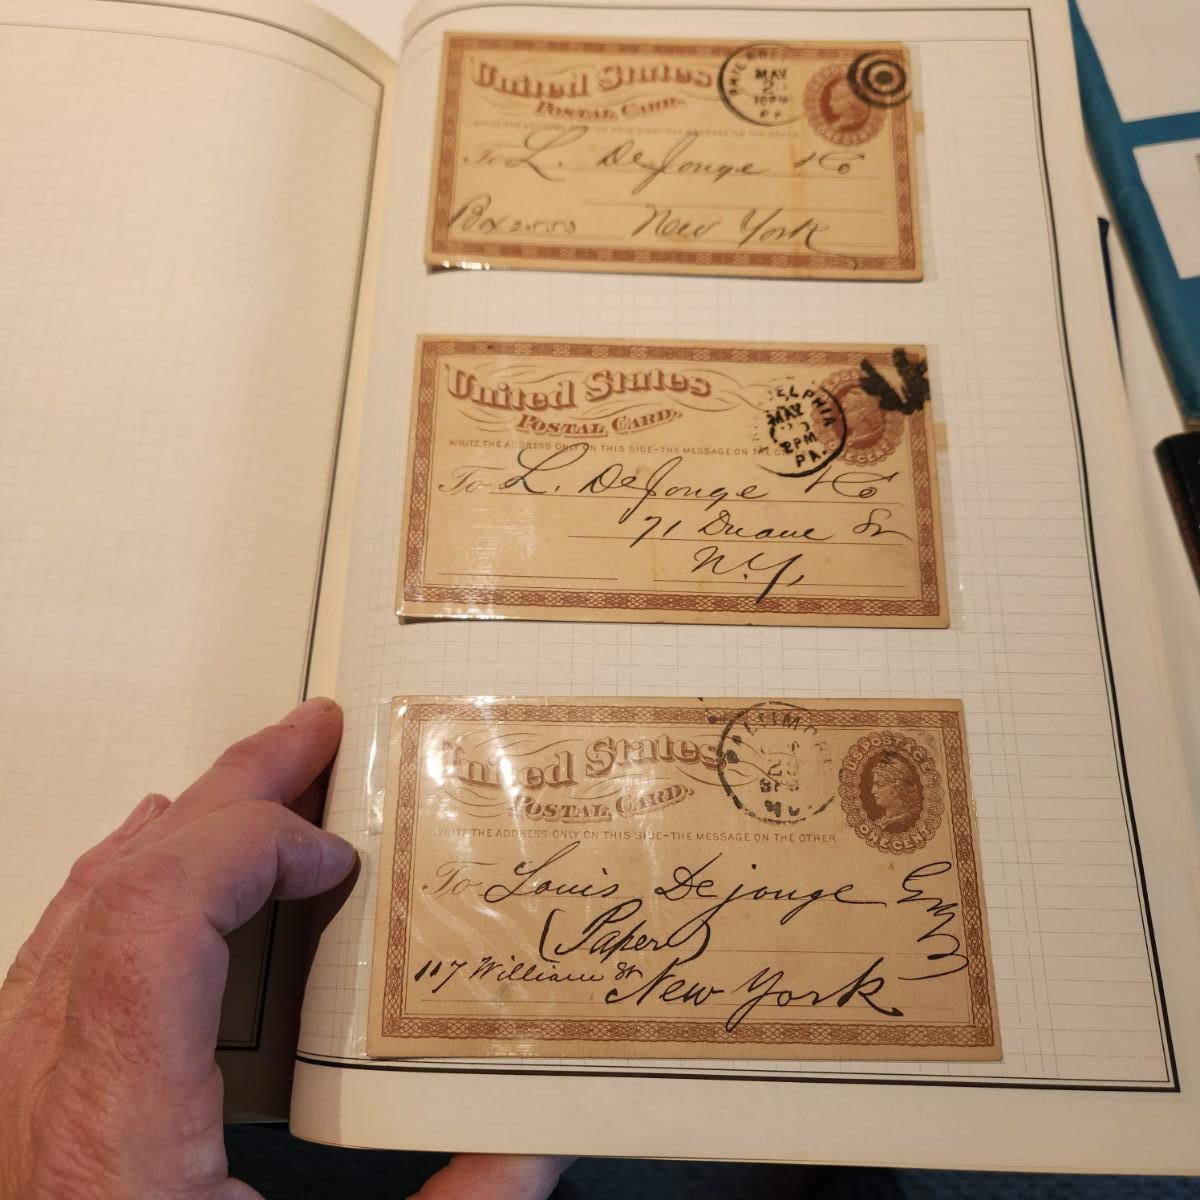 United States
POSTAL CARD.
MAY
10PM
WRITE THE ADDRESS ONLY ON THIS SIDE-THE MESSAGE ON THE OTHER
ONE CENT
To L. DeJonge & Co
Box 2553 New York
United States
POSTAL CARD.
PHILADELPHIA
MAY
2PM
PA.
ONE CENT
WRITE THE ADDRESS ONLY ON THIS SIDE-THE MESSAGE ON THE
To L. DeJonge & Co
71 Duane St
N.Y.
United States
POSTAL CARD.
BALTIMORE
U.S. POSTAGE
ONE CENT
WRITE THE ADDRESS ONLY ON THIS SIDE-THE MESSAGE ON THE OTHER
To Louis Dejonge Esq
(Paper)
117 William St New York